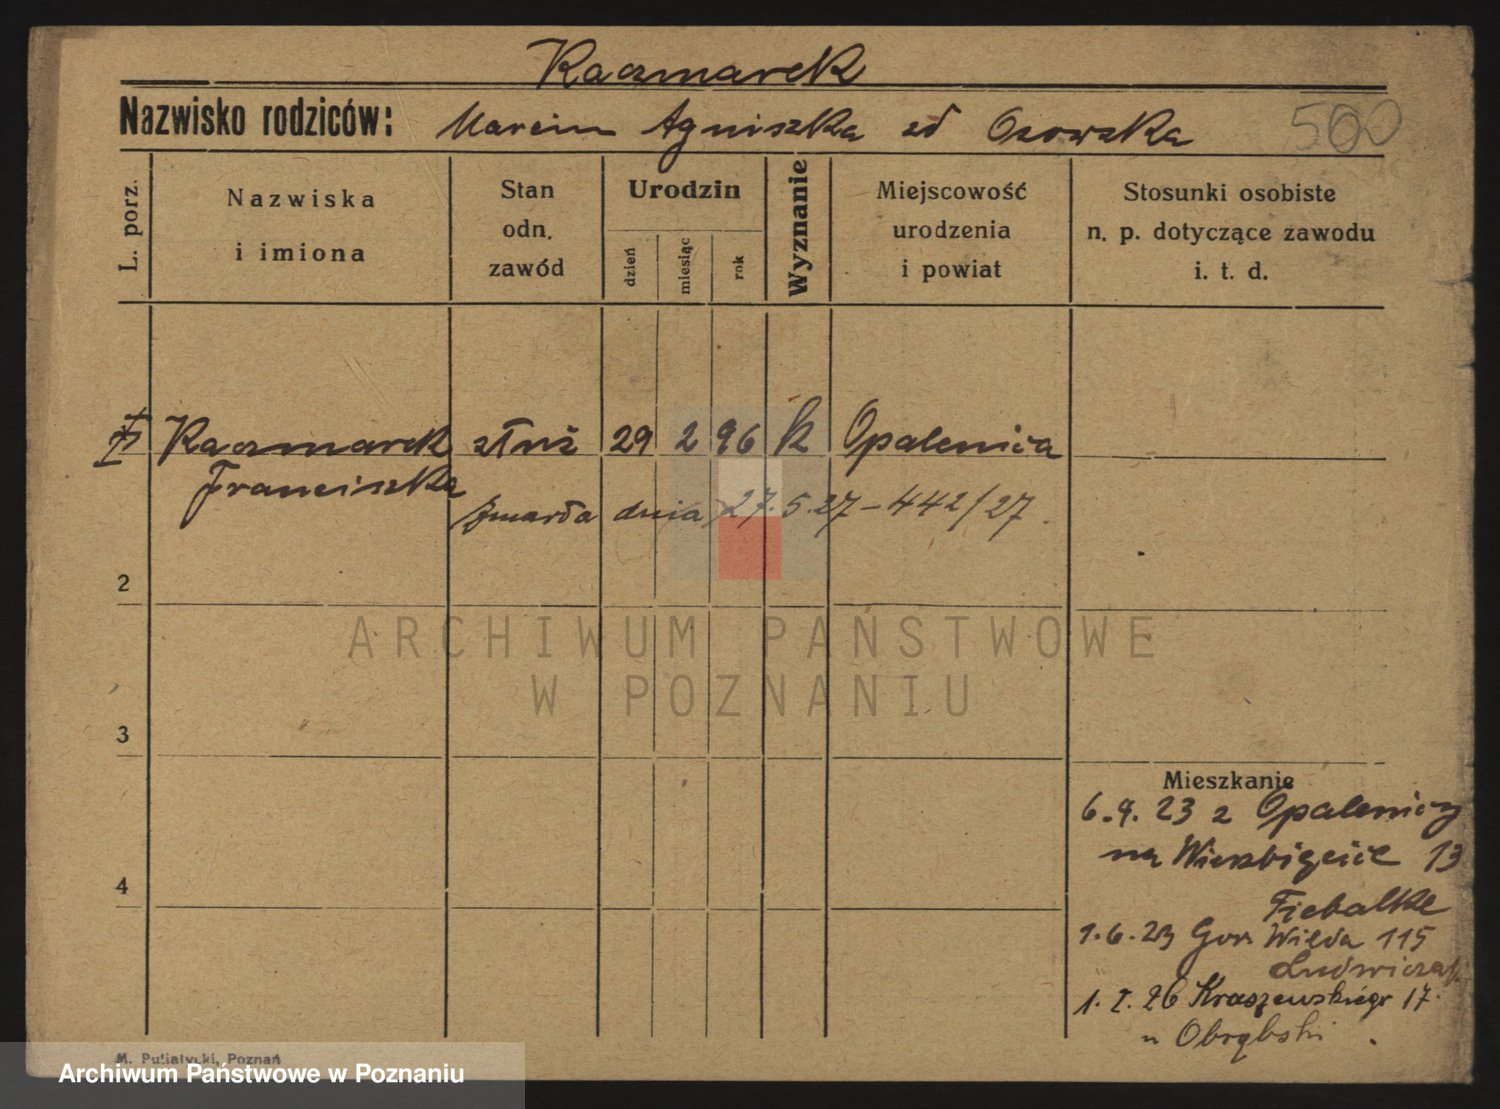 Kaczmarek
Nazwisko rodziców: Marcin Agniszka zd Osowska 500
L. porz.
Nazwiska i imiona
Stan odn. zawód
Urodzin
dzień miesiąc rok
Wyznanie
Miejscowość urodzenia i powiat
Stosunki osobiste n. p. dotyczące zawodu i. t. d.
Kaczmarek służ 29 2 96 k Opalenica
Franciszka
zmarła dnia 27.5.27 - 442/27
2
3
4
Mieszkanie
6.9.23 z Opalenicy
na Wierzbięcice 13
Fiebalke
1.6.23 Gor Wilda 115
Ludwiczak
1. I. 26 Kraszewskiego 17.
u Obrębski
M. Putiatycki, Poznań
ARCHIWUM PAŃSTWOWE
W POZNANIU
Archiwum Państwowe w Poznaniu